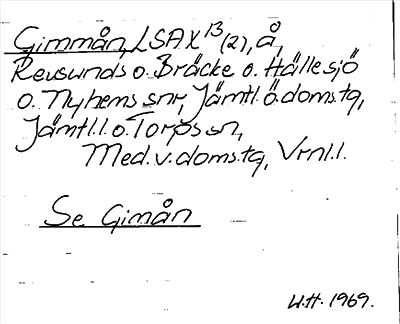 Gimmån, LSA X 13 (2), å,
Revsunds o. Bräcke o. Hällesjö
o. Nyhems snr, Jämtl. ö. doms.tg,
Jämtl. l. o. Torps sn,
Med. v. doms.tg, Vrnl. l.
Se Gimån
U.H. 1969.